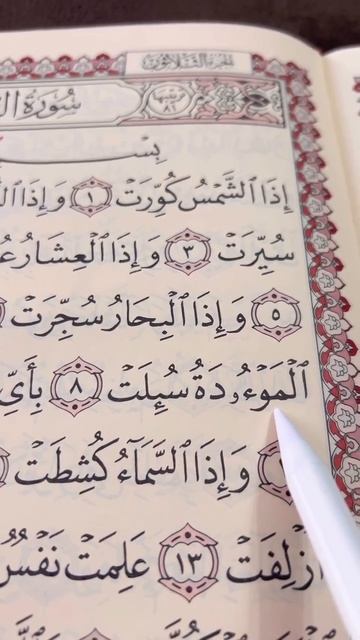 الجزء الثلاثون
سُورَةُ
ترتيبها ٨١
بِسْــ
إِذَا ٱلشَّمْسُ كُوِّرَتْ ١ وَإِذَا
سُيِّرَتْ ٣ وَإِذَا ٱلْعِشَارُ
٥ وَإِذَا ٱلْبِحَارُ سُجِّرَتْ
ٱلْمَوْءُۥدَةُ سُئِلَتْ ٨ بِأَيِّ
وَإِذَا ٱلسَّمَآءُ كُشِطَتْ
أُزْلِفَتْ ١٣ عَلِمَتْ نَفْسٌ